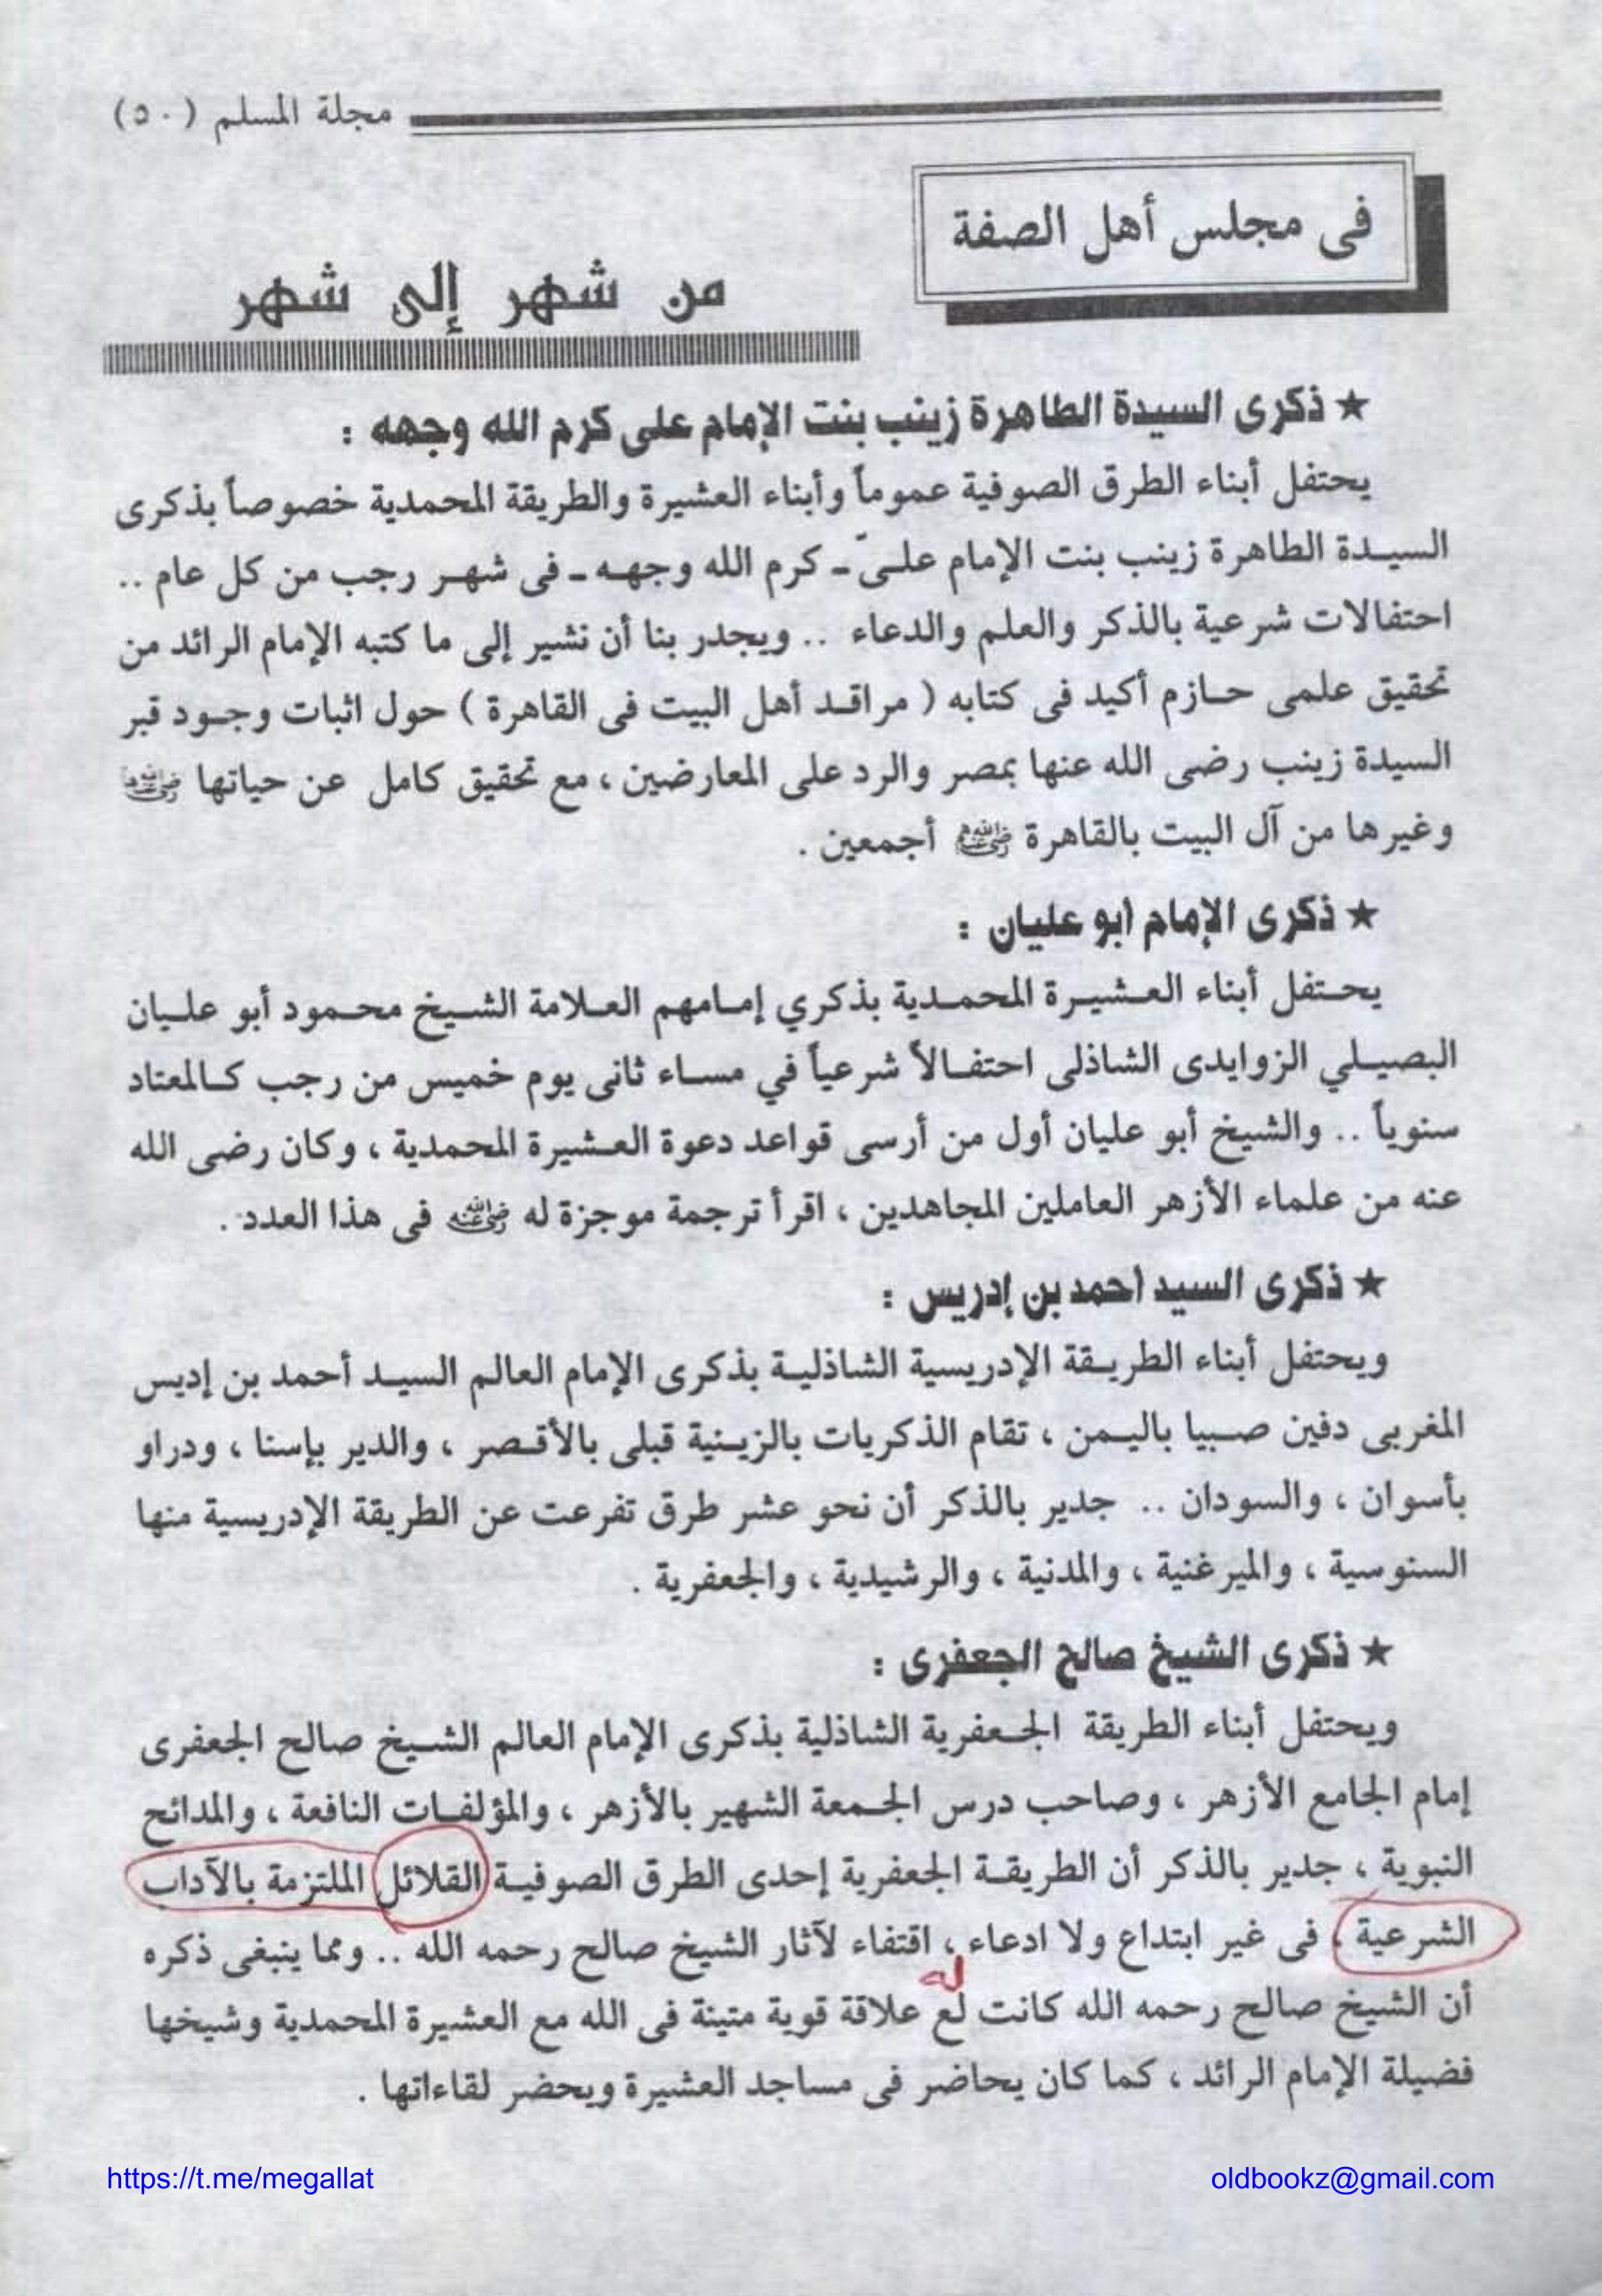 مجلة المسلم (٥٠)
فى مجلس أهل الصفة
من شهر إلى شهر
★ ذكرى السيدة الطاهرة زينب بنت الإمام على كرم الله وجهه :
يحتفل أبناء الطرق الصوفية عموماً وأبناء العشيرة والطريقة المحمدية خصوصاً بذكرى
السيدة الطاهرة زينب بنت الإمام علىّ ـ كرم الله وجهه ـ فى شهر رجب من كل عام ..
احتفالات شرعية بالذكر والعلم والدعاء .. ويجدر بنا أن نشير إلى ما كتبه الإمام الرائد من
تحقيق علمى حازم أكيد فى كتابه ( مراقد أهل البيت فى القاهرة ) حول اثبات وجود قبر
السيدة زينب رضى الله عنها بمصر والرد على المعارضين ، مع تحقيق كامل عن حياتها رضي الله عنها
وغيرها من آل البيت بالقاهرة رضي الله عنهم أجمعين .
★ ذكرى الإمام أبو عليان :
يحتفل أبناء العشيرة المحمدية بذكري إمامهم العلامة الشيخ محمود أبو عليان
البصيلي الزوايدى الشاذلى احتفالاً شرعياً في مساء ثانى يوم خميس من رجب كالمعتاد
سنوياً .. والشيخ أبو عليان أول من أرسى قواعد دعوة العشيرة المحمدية ، وكان رضى الله
عنه من علماء الأزهر العاملين المجاهدين ، اقرأ ترجمة موجزة له رضي الله عنه فى هذا العدد .
★ ذكرى السيد أحمد بن إدريس :
ويحتفل أبناء الطريقة الإدريسية الشاذلية بذكرى الإمام العالم السيد أحمد بن إديس
المغربى دفين صبيا باليمن ، تقام الذكريات بالزينية قبلى بالأقصر ، والدير بإسنا ، ودراو
بأسوان ، والسودان .. جدير بالذكر أن نحو عشر طرق تفرعت عن الطريقة الإدريسية منها
السنوسية ، والميرغنية ، والمدنية ، والرشيدية ، والجعفرية .
★ ذكرى الشيخ صالح الجعفرى :
ويحتفل أبناء الطريقة الجعفرية الشاذلية بذكرى الإمام العالم الشيخ صالح الجعفرى
إمام الجامع الأزهر ، وصاحب درس الجمعة الشهير بالأزهر ، والمؤلفات النافعة ، والمدائح
النبوية ، جدير بالذكر أن الطريقة الجعفرية إحدى الطرق الصوفية القلائل الملتزمة بالآداب
الشرعية ، فى غير ابتداع ولا ادعاء ، اقتفاء لآثار الشيخ صالح رحمه الله .. ومما ينبغى ذكره
له
أن الشيخ صالح رحمه الله كانت لع علاقة قوية متينة فى الله مع العشيرة المحمدية وشيخها
فضيلة الإمام الرائد ، كما كان يحاضر فى مساجد العشيرة ويحضر لقاءاتها .
https://t.me/megallat
oldbookz@gmail.com